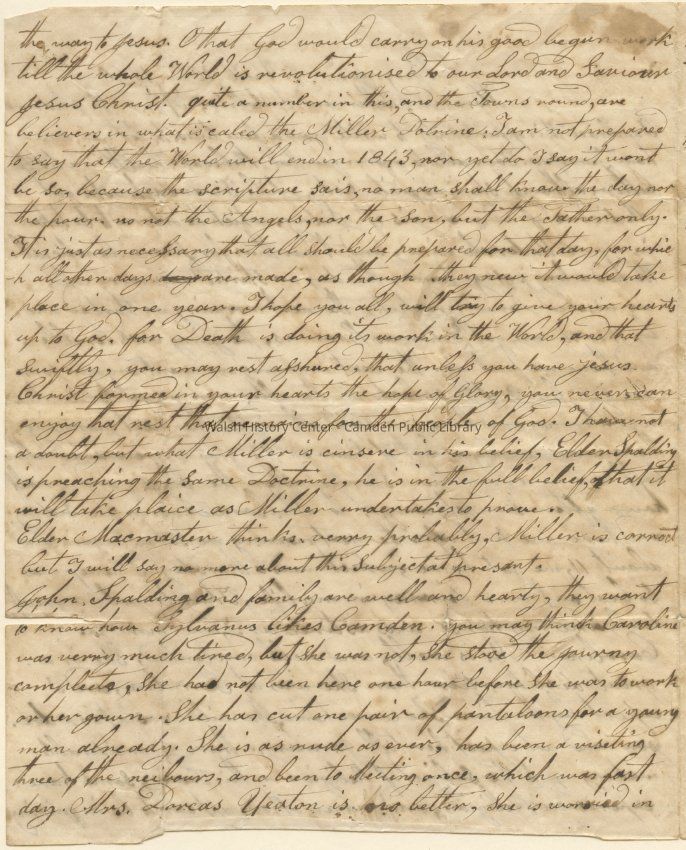 the way to Jesus. O that God would carry on his good begun work
till the whole World is revolutionised to our Lord and Saviour
Jesus Christ. quite a number in this, and the Towns round, are
believers in what is caled the Miller Dotrine. I am not prepared
to say that the World will end in 1843, nor yet do I say it wont
be so, because the scripture sais, no man shall know the day nor
the hour. no not the Angels, nor the son, but the Father only.
It is just as necessary that all should be prepared for that day, for whic
h all other days are made, as though they new it would take
place in one year. I hope you all, will try to give your hearts
up to God. for Death is doing its work in the World, and that
swiftly, you may rest asshured, that unless you have Jesus
Christ formed in your hearts the hope of Glory, you never can
enjoy that rest that remains for the of God. I have not
Walsh History Center - Camden Public Library
a doubt, but what Miller is cinsere in his belief, Elder Spalding
is preaching the same Doctrine, he is in the full belief, that it
will take plaice as Miller undertakes to prove.
Elder Macmaster thinks verry probably, Miller is correct
but I will say no more about this Subject at present.
John Spalding and family are well and hearty, they want
to know how Sylvanus likes Camden. you may think Caroline
was verry much tired, but she was not, she stood the journy
compleet, she had not been here one hour before she was to work
on her gown. She has cut one pair of pantaloons for a young
man already. She is as rude as ever, has been a viseting
three of the neibours, and been to Meeting once, which was fast
day. Mrs. Dorcas Yeaton is no better, she is worried in